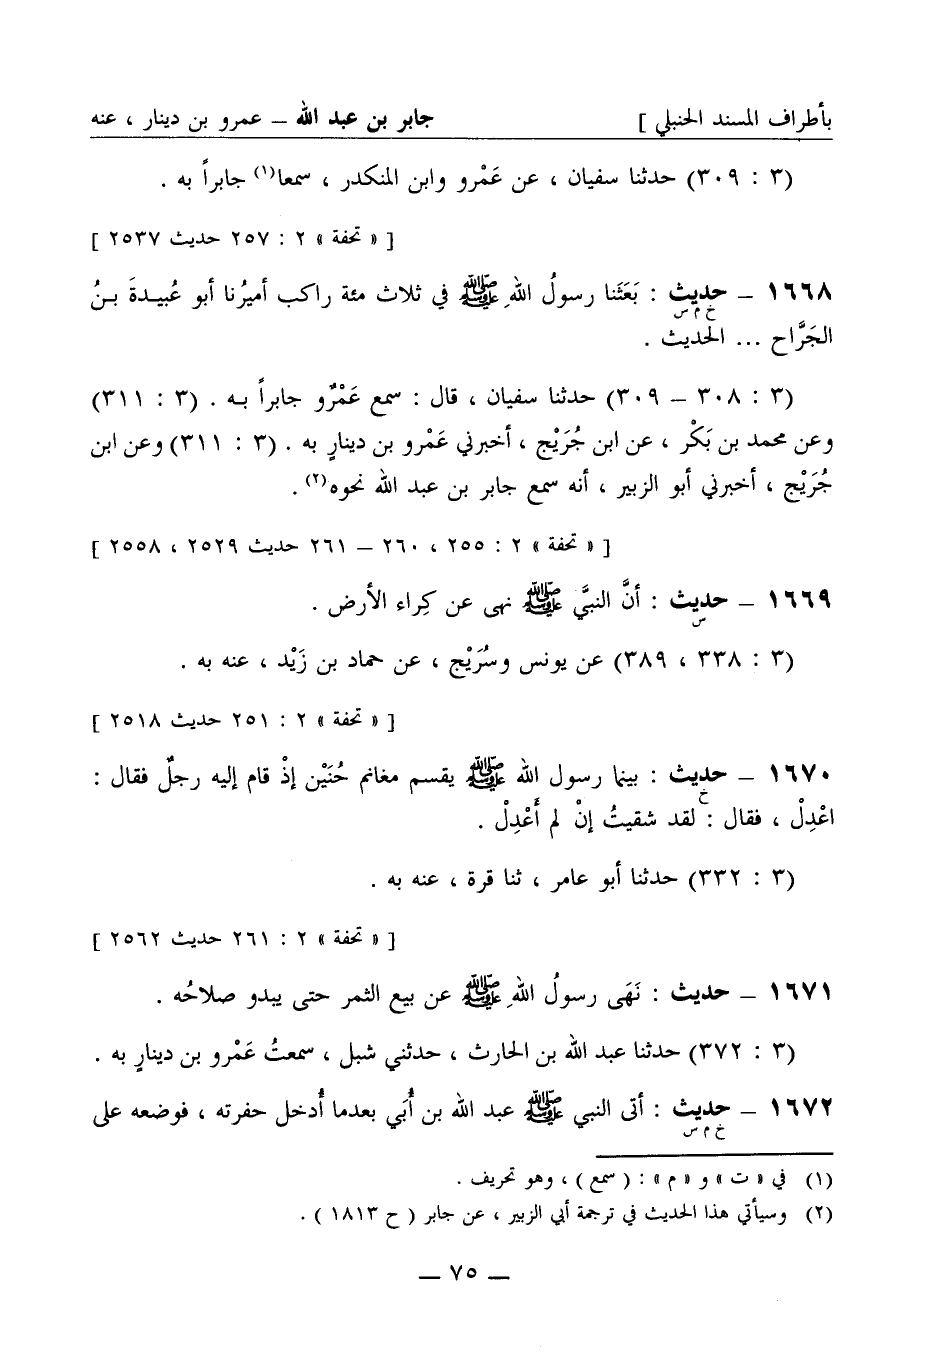 بأطراف المسند الحنبلي ] جابر بن عبد الله ــ عمرو بن دينار ، عنه
(٣ : ٣٠٩) حدثنا سفيان ، عن عَمْرو وابن المنكدر ، سمعا(١) جابراً به .
[ « تحفة » ٢ : ٢٥٧ حديث ٢٥٣٧ ]
١٦٦٨ ــ حديث : بَعَثَنا رسولُ اللهِ ﷺ في ثلاث مئة راكب أميرُنا أبو عُبيـدةَ بـنُ
خ م س
الجَرَّاح ... الحديث .
(٣ : ٣٠٨ ــ ٣٠٩) حدثنا سفيان ، قال : سمع عَمْرٌو جابراً بـه . (٣ : ٣١١)
وعن محمد بن بَكْر ، عن ابن جُرَيْج ، أخبرني عَمْرو بن دينارٍ به . (٣ : ٣١١) وعن ابن
جُرَيْج ، أخبرني أبو الزبير ، أنه سمع جابر بن عبد الله نحوه(٢) .
[ « تحفة » ٢ : ٢٥٥ ، ٢٦٠ ــ ٢٦١ حديث ٢٥٢٩ ، ٢٥٥٨ ]
١٦٦٩ ــ حديث : أنَّ النبيَّ ﷺ نهى عن كِراء الأرض .
س
(٣ : ٣٣٨ ، ٣٨٩) عن يونس وسُرَيْج ، عن حماد بن زَيْد ، عنه به .
[ « تحفة » ٢ : ٢٥١ حديث ٢٥١٨ ]
١٦٧٠ ــ حديث : بينما رسول الله ﷺ يقسم مغانم حُنَيْن إذْ قام إليه رجلٌ فقال :
خ
اعْدِلْ ، فقال : لقد شقيتُ إنْ لم أَعْدِلْ .
(٣ : ٣٣٢) حدثنا أبو عامر ، ثنا قرة ، عنه به .
[ « تحفة » ٢ : ٢٦١ حديث ٢٥٦٢ ]
١٦٧١ ــ حديث : نَهَى رسولُ اللهِ ﷺ عن بيع الثمر حتى يبدو صلاحُه .
(٣ : ٣٧٢) حدثنا عبد الله بن الحارث ، حدثني شبل ، سمعتُ عَمْرو بن دينارٍ به .
١٦٧٢ ــ حديث : أتى النبي ﷺ عبد الله بن أُبَي بعدما أُدخل حفرته ، فوضعه على
خ م س
(١) في « ت » و « م » : ( سمع ) ، وهو تحريف .
(٢) وسيأتي هذا الحديث في ترجمة أبي الزبير ، عن جابر ( ح ١٨١٣ ) .
ــ ٧٥ ــ